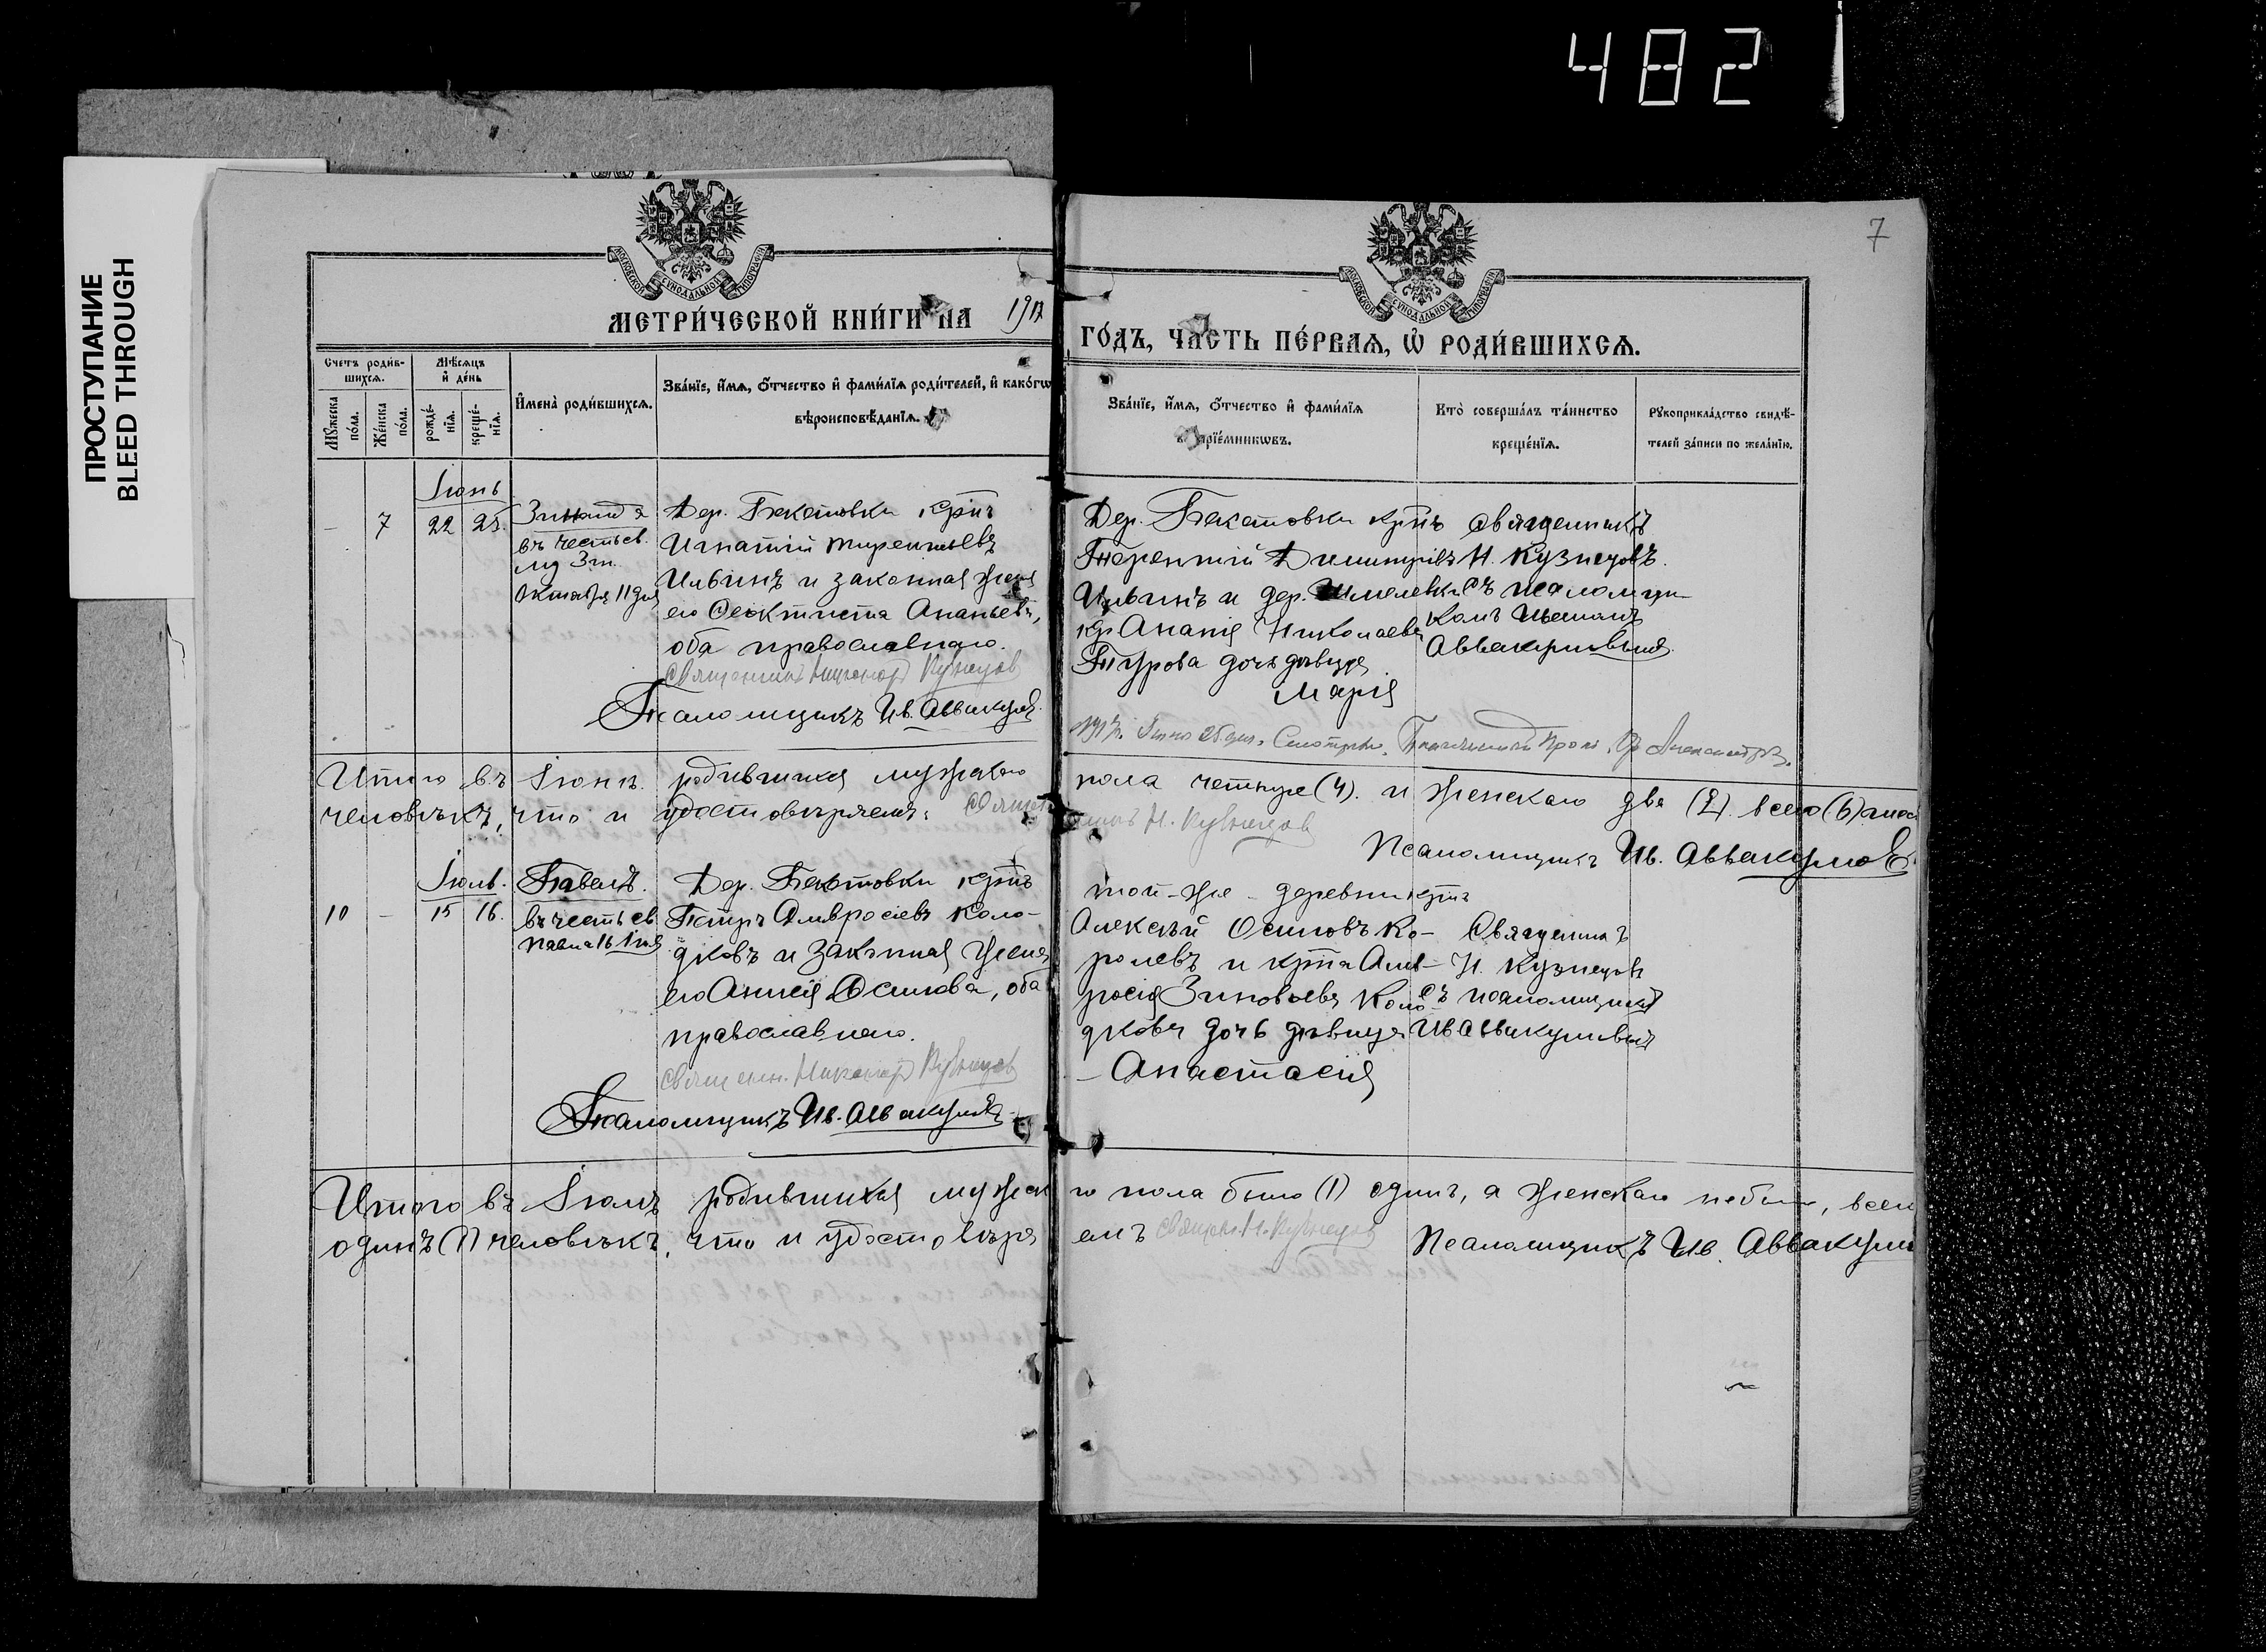 482
ПРОСТУПАНИЕ
BLEED THROUGH
7
МОСКОВСКОЙ СѴНОДАЛЬНОЙ ТИПОГРАФІИ
МОСКОВСКОЙ СѴНОДАЛЬНОЙ ТИПОГРАФІИ
МЕТРИ́ЧЕСКОЙ КНИ́ГИ НА 1917
ГО́ДЪ, ЧАСТЬ ПЕ́РВАѦ, Ѡ҆ РОДИ́ВШИХСѦ.
Счетъ роди́в-
шихсѧ.
Мꙋ́жеска по́ла.
Же́нска по́ла.
Мѣ́сѧцъ
и҆ де́нь
рожде́-
нїѧ.
креще́-
нїѧ.
И҆мена̀ роди́вшихсѧ.
Зва́нїе, и҆́мѧ, ѻ҆́тчество и҆ фами́лїѧ роди́телей, и҆ како́гѡ
вѣроисповѣ́данїѧ.
Зва́нїе, и҆́мѧ, ѻ҆́тчество и҆ фами́лїѧ
воспрїе́мникѡвъ.
Кто̀ соверша́лъ та́инство
креще́нїѧ.
Рꙋкоприкла́дство свидѣ́-
телей за́писи по жела́нїю.
Іюнь
– 7 22 25.
въ честь св.
Октября 11 дня
Дер. Бекетовки
Игнатій Терентьевъ
Ильинъ и законная жена
его Феоктиста Ананьева,
оба православнаго.
Священникъ Никаноръ Кузнецовъ
Псаломщикъ Ив. Аввакумовъ.
Дер. Бекетовки
Терентій Димитріевъ
Ильинъ и дер.
кр Ананія Николаева
Турова дочь девица
Марія
Священникъ
Н. Кузнецовъ.
съ псаломщи-
комъ
Аввакумовымъ.
Итого въ Іюнѣ родившихся мужскаго пола четыре (4). и женскаго два (2). всего (6)
человѣкъ, что и удостовѣряемъ: Священникъ Н. Кузнецов
Псаломщикъ Ив. Аввакумов.
Іюль.
10 – 15 16.
Павелъ.
въ честь св
Павла 16 Іюля
Дер. Бекетовки
Петръ Амвросіевъ Коло-
дковъ и законная жена
его Анисія Осипова, оба
православнаго.
Священн. Никаноръ Кузнецов
Псаломщикъ Ив. Аввакумовъ
той-же деревни
Алексѣй Осиповъ Ко-
ролевъ и Амв-
росія Зиновьева Коло-
дкова дочь дѣвица
– Анастасія
Священникъ
Н. Кузнецовъ
съ псаломщикомъ
Ив Аввакумовымъ
Итого въ Іюлѣ родившихся мужск го пола было (1) одинъ, а женскаго небыло, всего
одинъ (1) человѣкъ, что и удостовѣря емъ Священ. Н. Кузнецов
Псаломщикъ Ив. Аввакумов